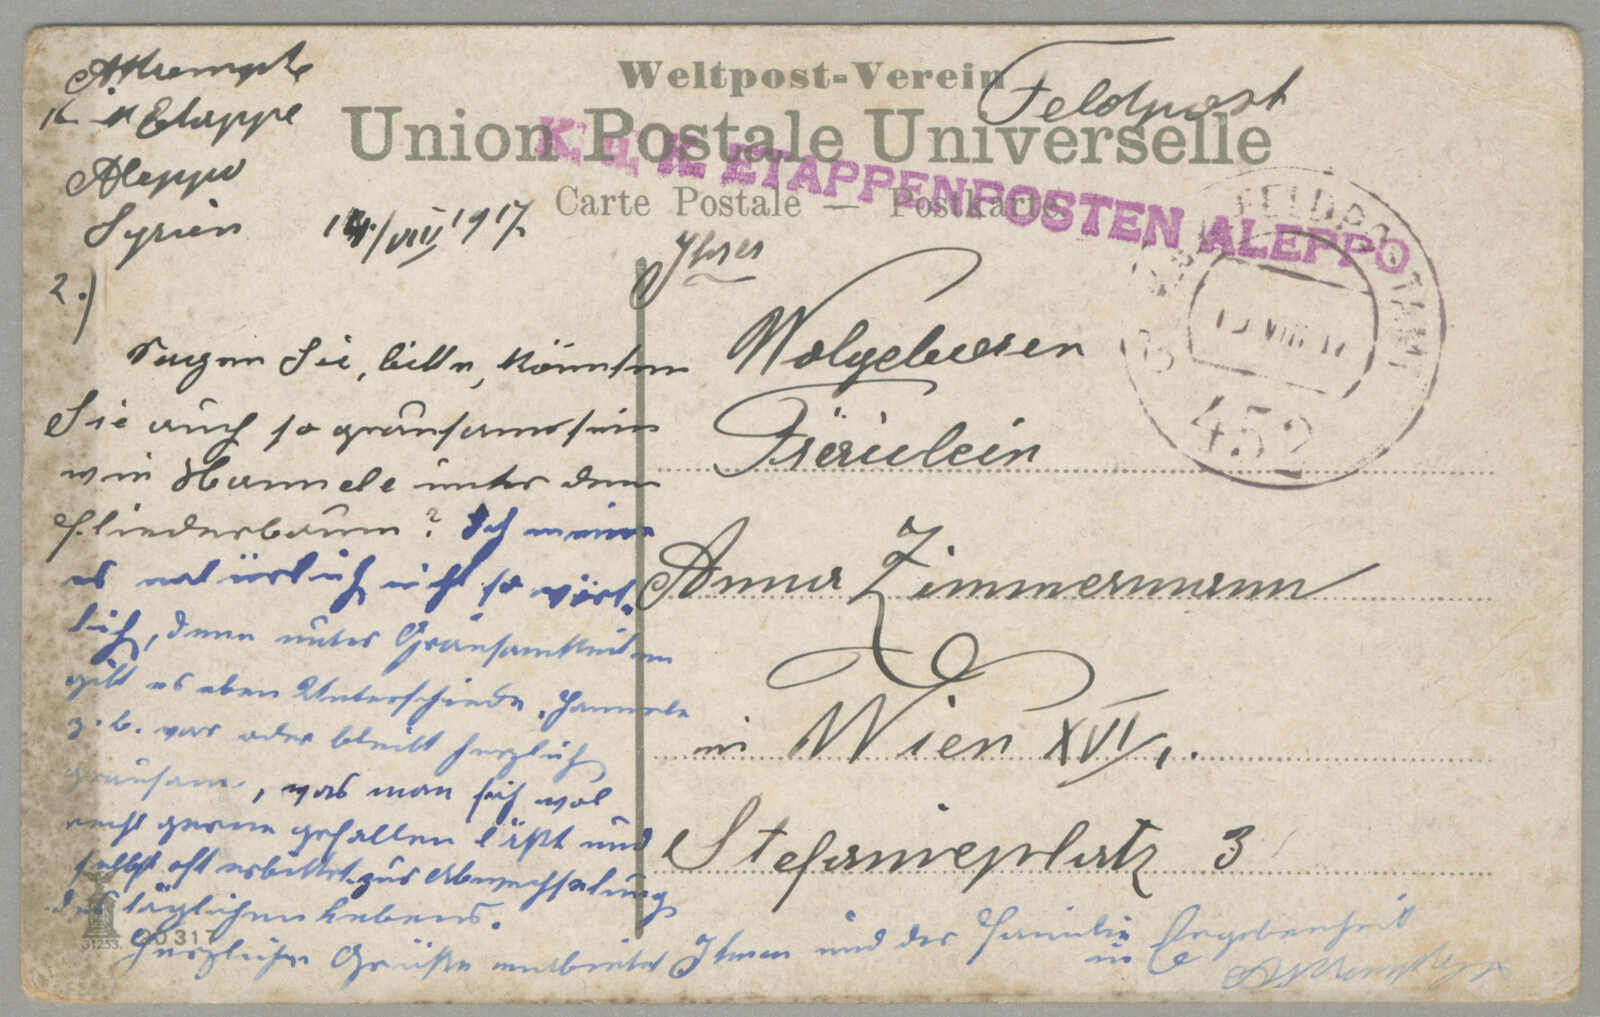 Weltpost-Verein
Union Postale Universelle
Carte Postale — Postkarte
Feldpost
K. u. K. ETAPPENPOSTEN ALEPPO
FELDPOSTAMT
VIII 17
452
Etappe
Aleppo
Syrien 14./VIII 1917.
2.)
Sagen Sie, bitte, könnten
Sie auch so grausam sein
wie Hannele unter dem
Fliederbaum? Ich meine
es natürlich nicht so wört-
lich, denn unter Grausamkeiten
gibt es eben Unterschiede, Hannele
z.b. war oder bleibt herzlich
grausam, was man sich wol
recht gerne gefallen läßt und
selbst oft erbittet zur Abwechslung
des täglichen Lebens.
Herzliche Grüße entbietet Ihnen und der Familie in Ergebenheit
Ihrer
Wolgeboren
Fräulein
Anna Zimmermann
in Wien XVI/1.
Stefanieplatz 3
31253. 20317